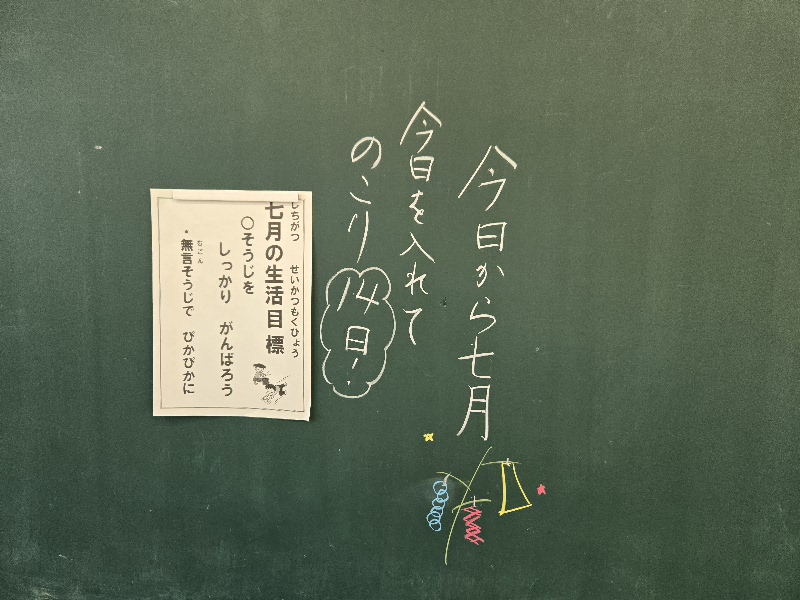 今日から七月
今日を入れて
のこり14日！
しちがつ　せいかつもくひょう
七月の生活目標
○そうじを
しっかり　がんばろう
むごん
・無言そうじで　ぴかぴかに